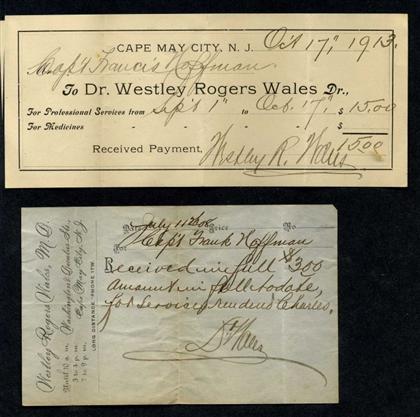 CAPE MAY CITY, N. J. Oct 17, 1913.
Capt Francis Hoffman
To Dr. Westley Rogers Wales Dr.,
For Professional Services from Sept 1" to Oct. 17," $ 15.00
For Medicines " " " "
$ 15.00
Received Payment, Westley R. Wales
Westley Rogers Wales, M. D.
Washington & Streets,
Cape May City, N. J.
Until 10 a. m.
2 to 4 p. m.
7 to 9 p. m.
LONG DISTANCE 'PHONE 17M
July 11 Price No
For Capt Frank Hoffman
Received in full $3.00
amount in full to date,
for services rendered Charles.
Dr Wales